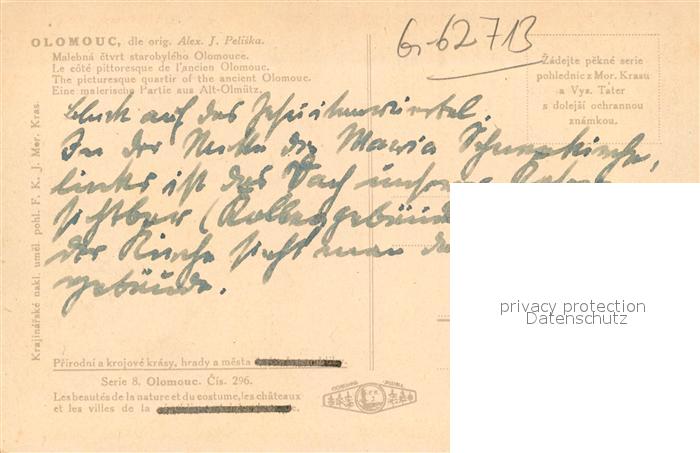 G-62713
OLOMUC, dle orig. Alex. J. Peliška.
Malebná čtvrt starobylého Olomouce.
Le côté pittoresque de l'ancien Olomouc.
The picturesque quartir of the ancient Olomouc.
Eine malerische Partie aus Alt-Olmütz.
Žádejte pěkné serie
pohlednic z Mor. Krasu
a Vys. Tater
s dolejší ochrannou
známkou.
Krajinářské nakl. uměl. pohl. F. K. J. Mor. Kras.
Blick auf das Jesuitenviertel.
In der Mitte die Maria Schneekirche,
links ist das Dach unseres
sichtbar (
der Kirche sieht man
gebäude.
privacy protection
Datenschutz
Přírodní a krojové krásy, hrady a města
Serie 8. Olomouc. Čís. 296.
Les beautés de la nature et du costume, les châteaux
et les villes de la